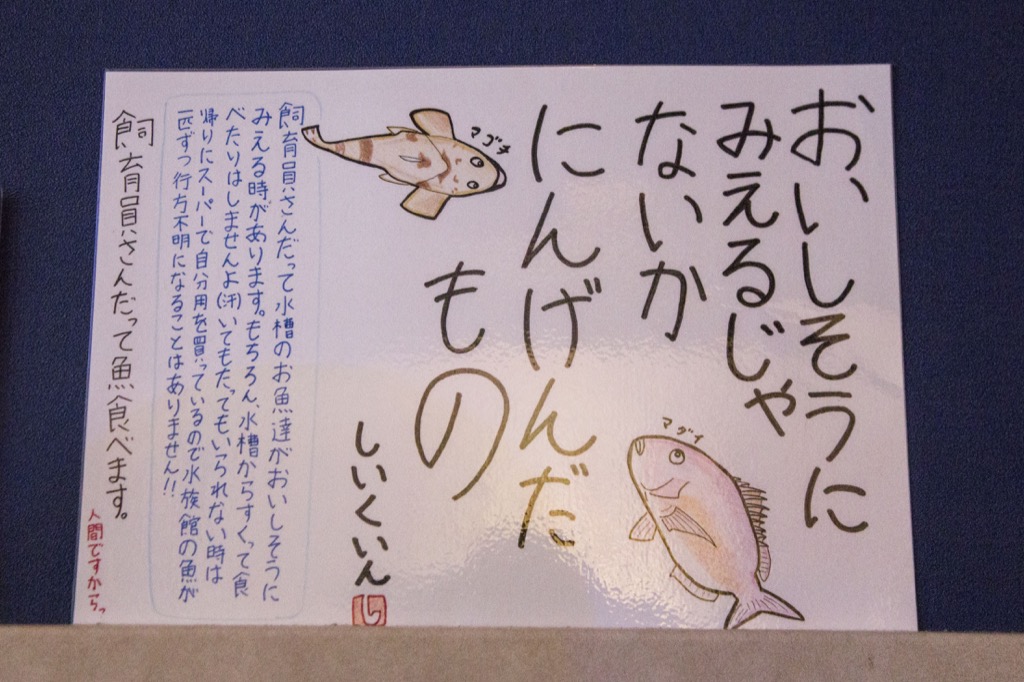 おいしそうに
みえるじゃ
ないか
にんげんだ
もの
しいくいん
し
マゴチ
マダイ
飼育員さんだって水槽のお魚達がおいしそうに
みえる時があります。もちろん、水槽からすくって食
べたりはしませんよ(汗)いてもたってもいられない時は
帰りにスーパーで自分用を買っているので水族館の魚が
一匹ずつ行方不明になることはありません!!
飼育員さんだって魚食べます。
人間ですからっ